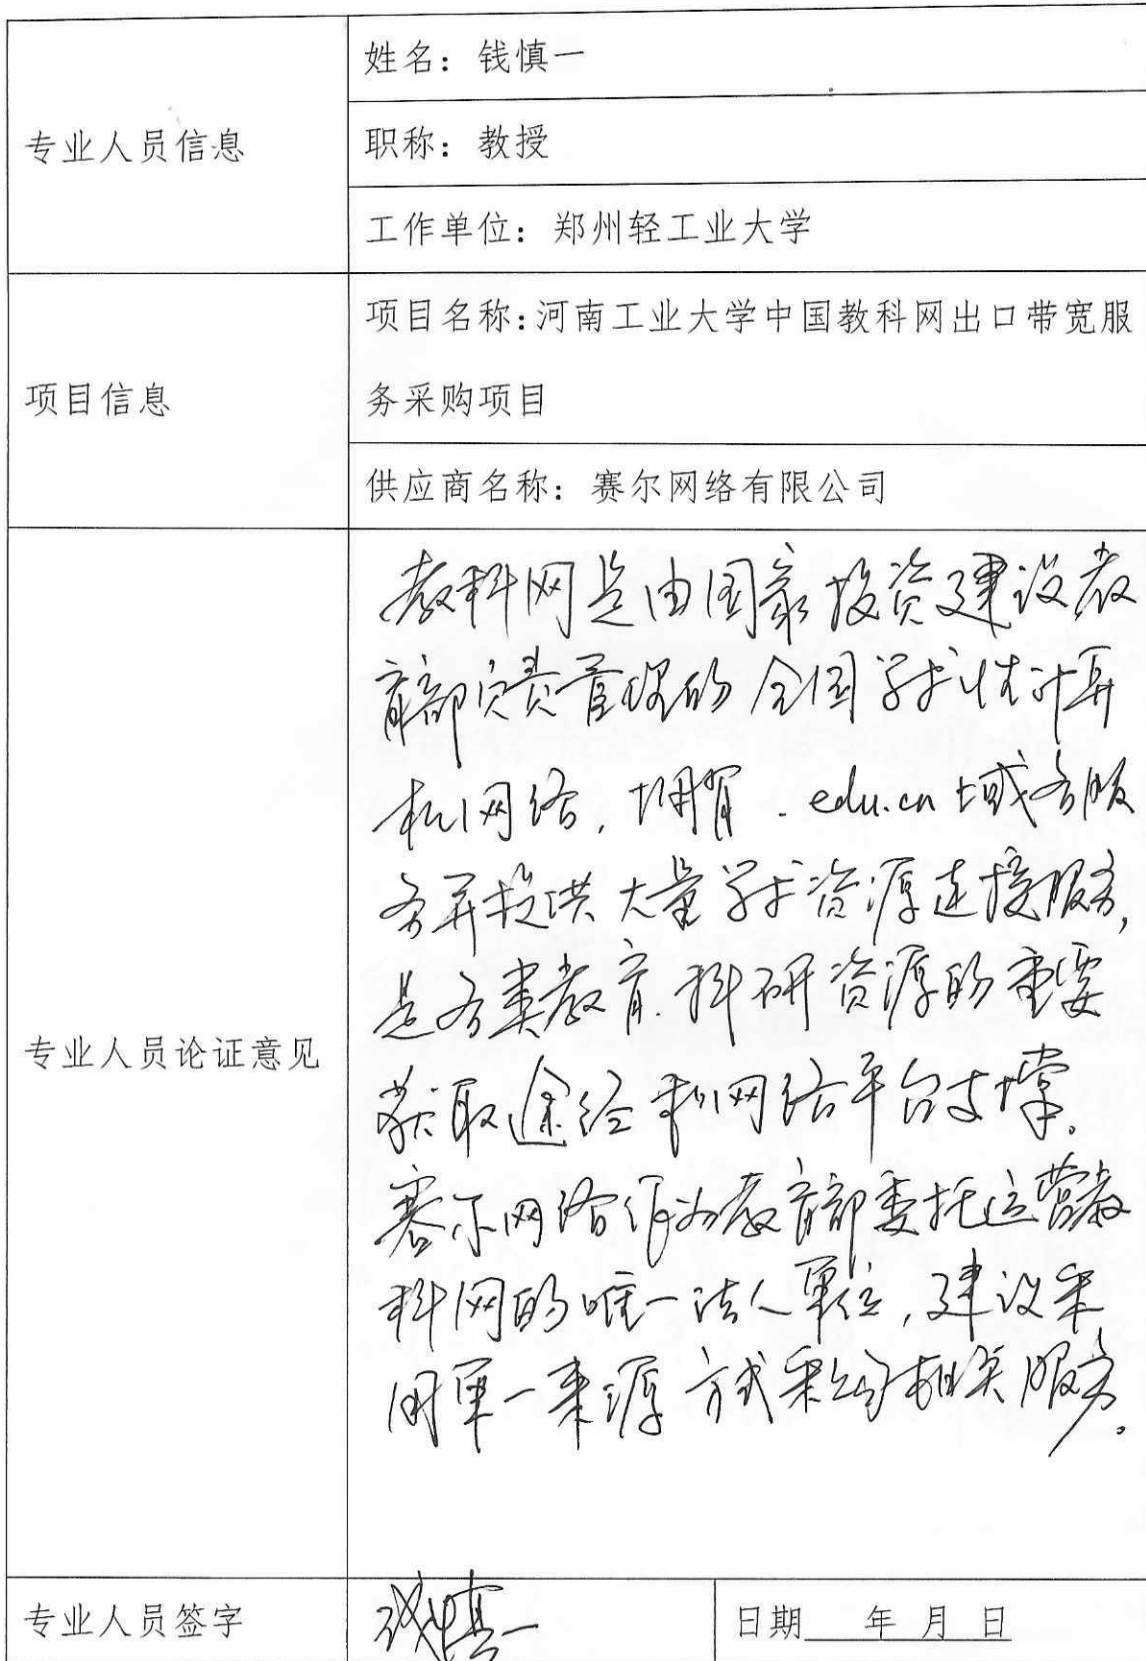 姓名：钱慎一
专业人员信息
职称：教授
工作单位：郑州轻工业大学
项目名称：河南工业大学中国教科网出口带宽服
项目信息
务采购项目
供应商名称：赛尔网络有限公司
教科网是由国家投资建设教
育部负责管理的全国学术性计算
机网络，拥有.edu.cn域名服
务并提供大量学术资源连接服务，
是各类教育.科研资源的重要
专业人员论证意见
获取途径和网络平台支撑。
赛尔网络作为教育部委托运营教
科网的唯一法人单位，建议采
用单一来源方式采购相关服务。
专业人员签字 钱慎一 日期 年 月 日